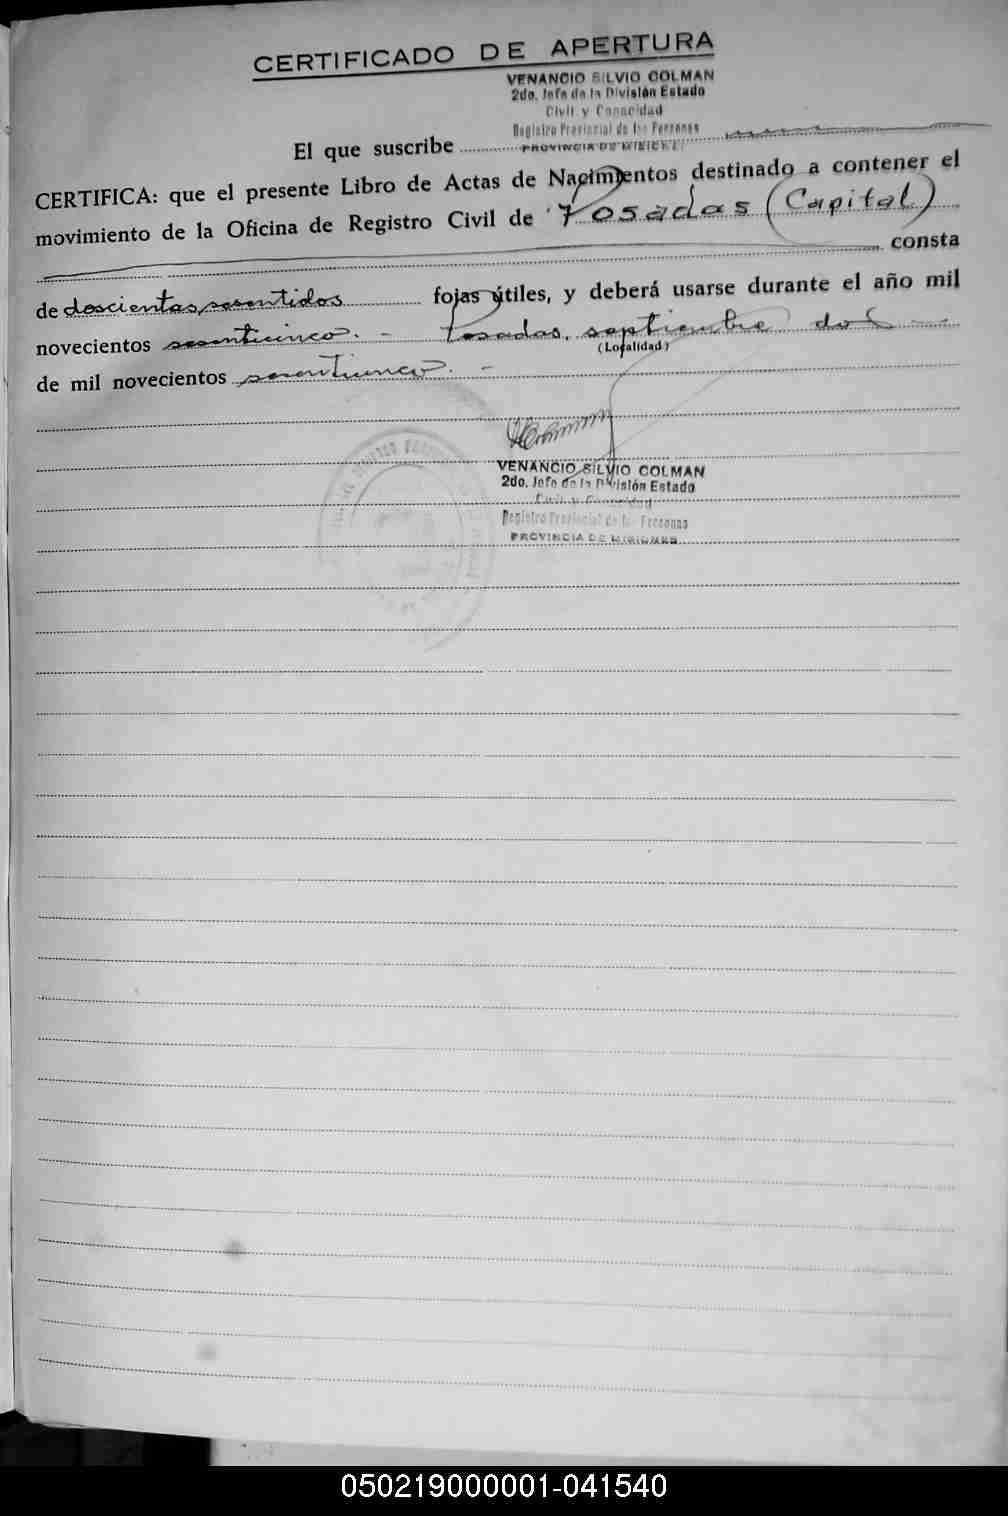 CERTIFICADO DE APERTURA
VENANCIO SILVIO COLMAN
2do. Jefe de la División Estado
Civil y Capacidad
Registro Provincial de las Personas
PROVINCIA DE MISIONES
El que suscribe
CERTIFICA: que el presente Libro de Actas de Nacimientos destinado a contener el
movimiento de la Oficina de Registro Civil de Posadas (Capital)
consta
de doscientas sesentidos fojas útiles, y deberá usarse durante el año mil
novecientos sesenticinco. - Posadas, septiembre dos -
(Localidad)
de mil novecientos sesenticinco. -
VENANCIO SILVIO COLMAN
2do. Jefe de la División Estado
Civil y Capacidad
Registro Provincial de las Personas
PROVINCIA DE MISIONES
050219000001-041540